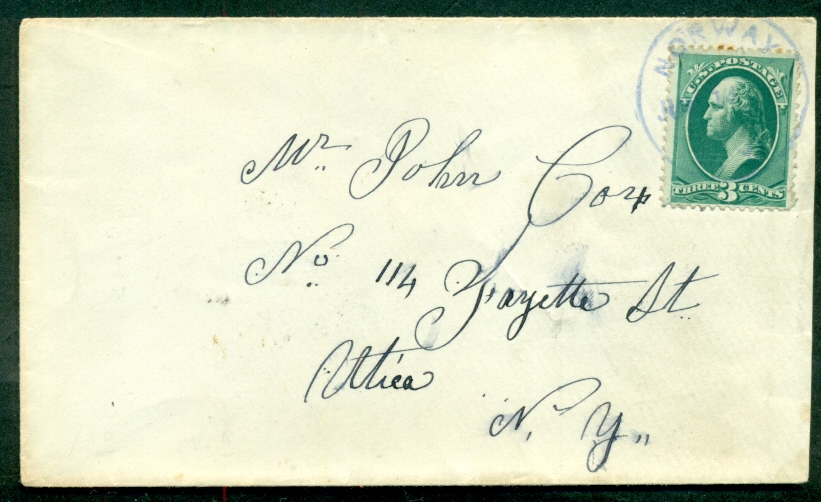 NORWAY
U.S. POSTAGE
THREE 3 CENTS
Mr. John Cox
No 114 Fayette St.
Utica
N. Y.